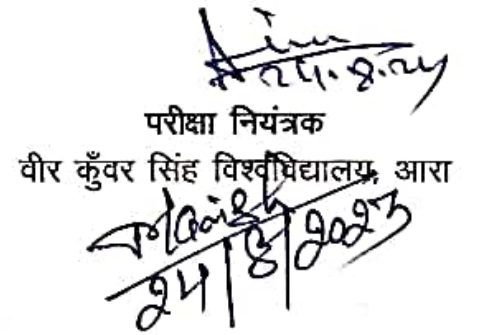 24.8.24
परीक्षा नियंत्रक
वीर कुँवर सिंह विश्वविद्यालय, आरा
24/8/2023